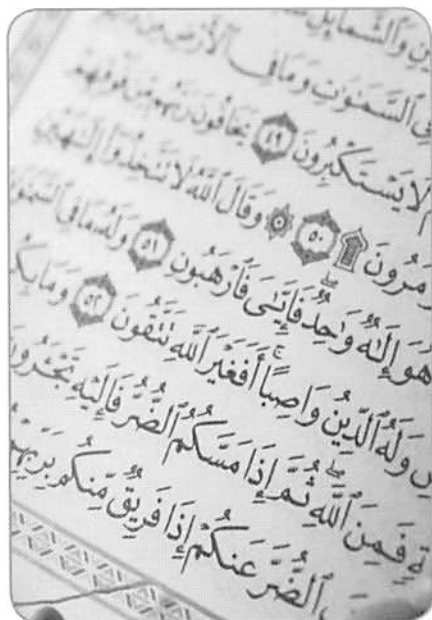 ـينِ وَٱلشَّمَآئِلِ
فِي ٱلسَّمَٰوَٰتِ وَمَا فِي ٱلْأَرْضِ مِن
لَا يَسْتَكْبِرُونَ ٤٩ يَخَافُونَ رَبَّهُم مِّن فَوْقِهِمْ
ـؤْمَرُونَ ۩ ٥٠ ۞ وَقَالَ ٱللَّهُ لَا تَتَّخِذُوٓا۟ إِلَٰهَيْنِ
هُوَ إِلَٰهٌ وَٰحِدٌ ۖ فَإِيَّٰيَ فَٱرْهَبُونِ ٥١ وَلَهُۥ مَا فِي ٱلسَّمَٰوَٰ
ـضِ وَلَهُ ٱلدِّينُ وَاصِبًا ۚ أَفَغَيْرَ ٱللَّهِ تَتَّقُونَ ٥٢ وَمَا بِكُم
ـمَةٍ فَمِنَ ٱللَّهِ ۖ ثُمَّ إِذَا مَسَّكُمُ ٱلضُّرُّ فَإِلَيْهِ تَجْـَٔرُونَ
ٱلضُّرَّ عَنكُمْ إِذَا فَرِيقٌ مِّنكُم بِرَبِّهِمْ